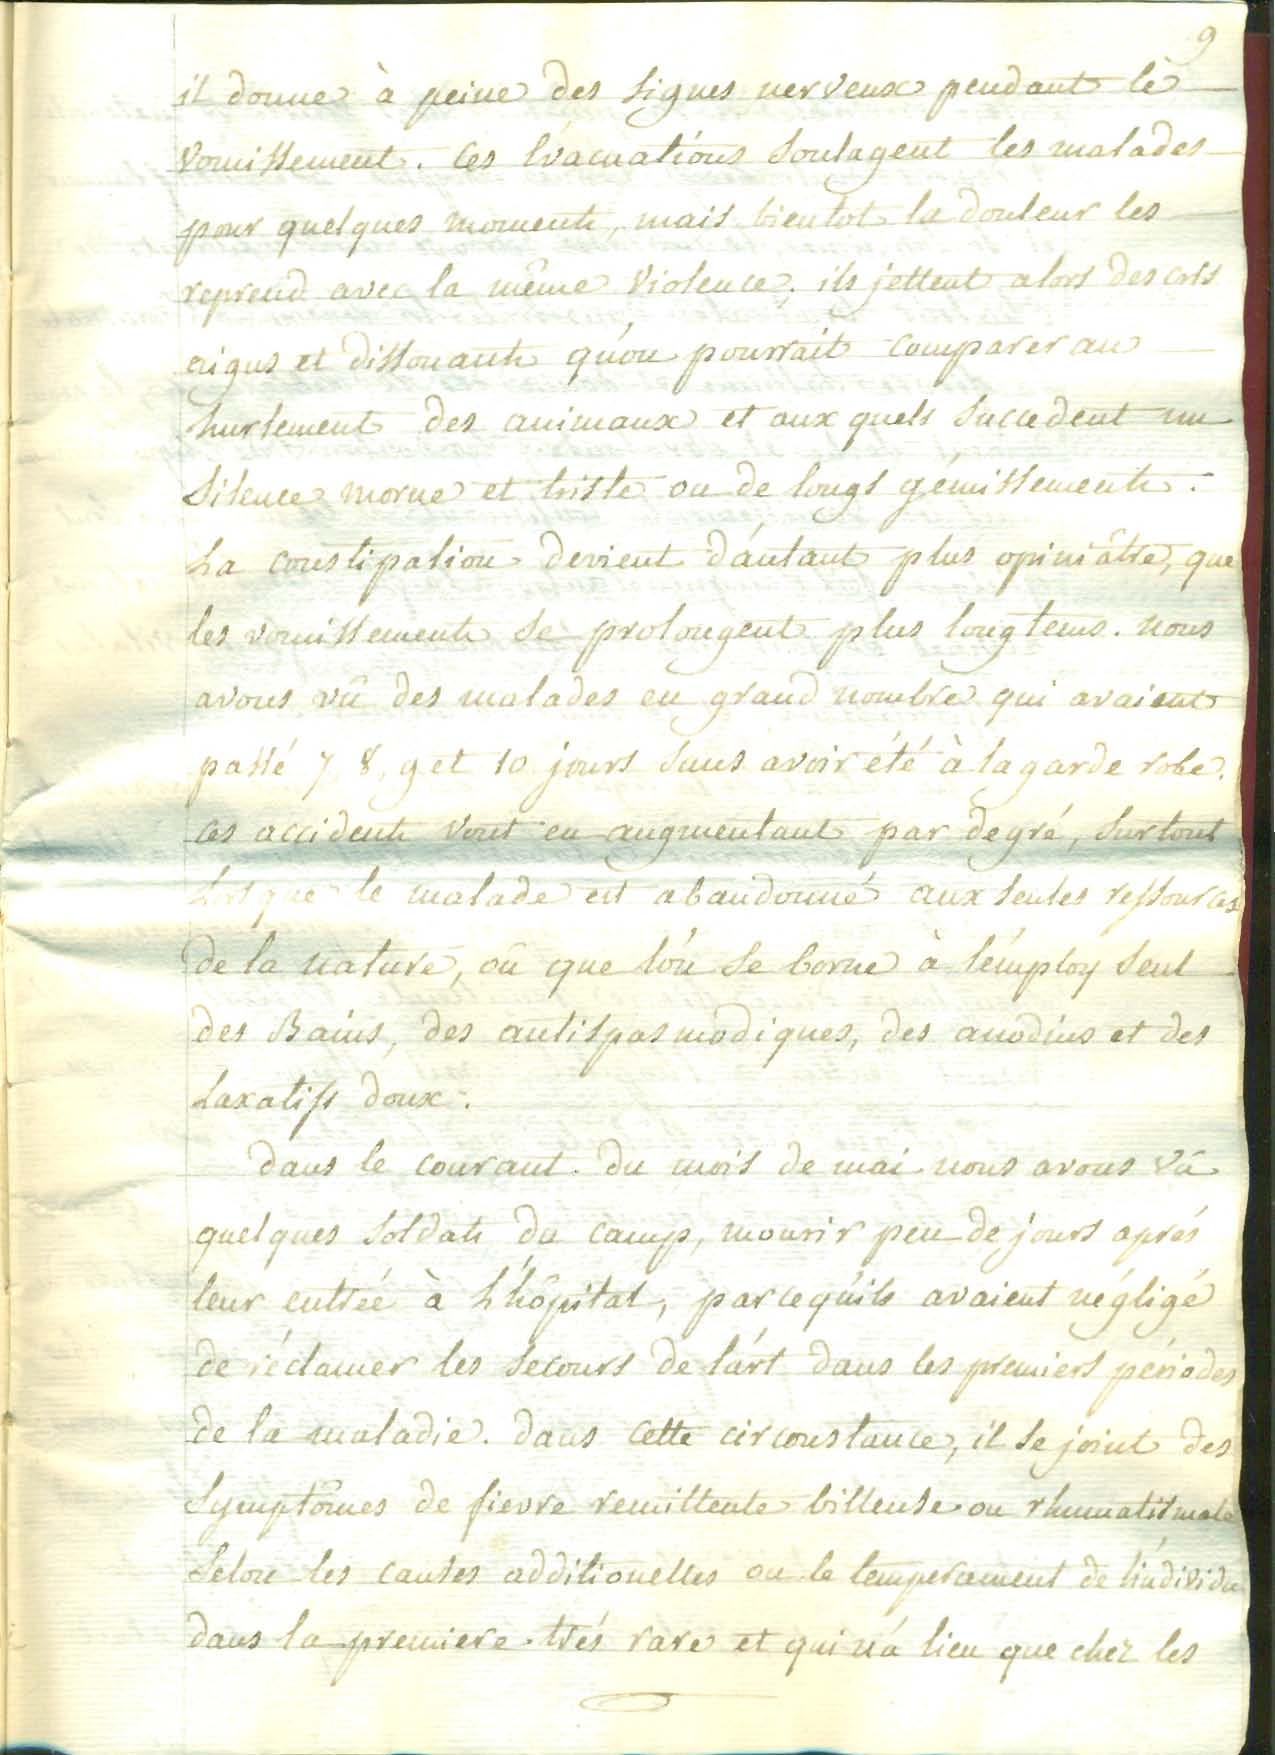 9
il donne à peine des signes nerveux pendant le
vomissement. ces évacuations soulagent les malades
pour quelques moments, mais bientot la douleur les
reprend avec la même violence; ils jettent alors des cris
aigus et dissonants qu'on pourrait comparer au
hurlement des animaux et aux quels succedent un
silence morne et triste ou de longs gémissements.
La constipation devient d'autant plus opiniâtre, que
les vomissements se prolongent plus longtems. nous
avons vû des malades en grand nombre qui avaient
passé 7, 8, 9 et 10 jours sans avoir été à la garde robe.
ces accidents vont en augmentant par degré, surtout
Lorsque le malade est abandonné aux seules ressources
de la nature, où que l'on se borne à l'employ seul
des Bains, des antispasmodiques, des anodins et des
Laxatifs doux.
dans le courant du mois de mai nous avons vû
quelques soldats du camp, mourir peu de jours aprés
leur entrée à L'hôpital, parcequ'ils avaient négligé
de réclamer les secours de l'art dans les premiers périodes
de la maladie. dans cette circonstance, il se joint des
symptômes de fievre remittente billeuse ou rhumatismale
selon les causes additionelles ou le temperament de l'individu
dans la premiere trés rare et qui n'a lieu que chez les